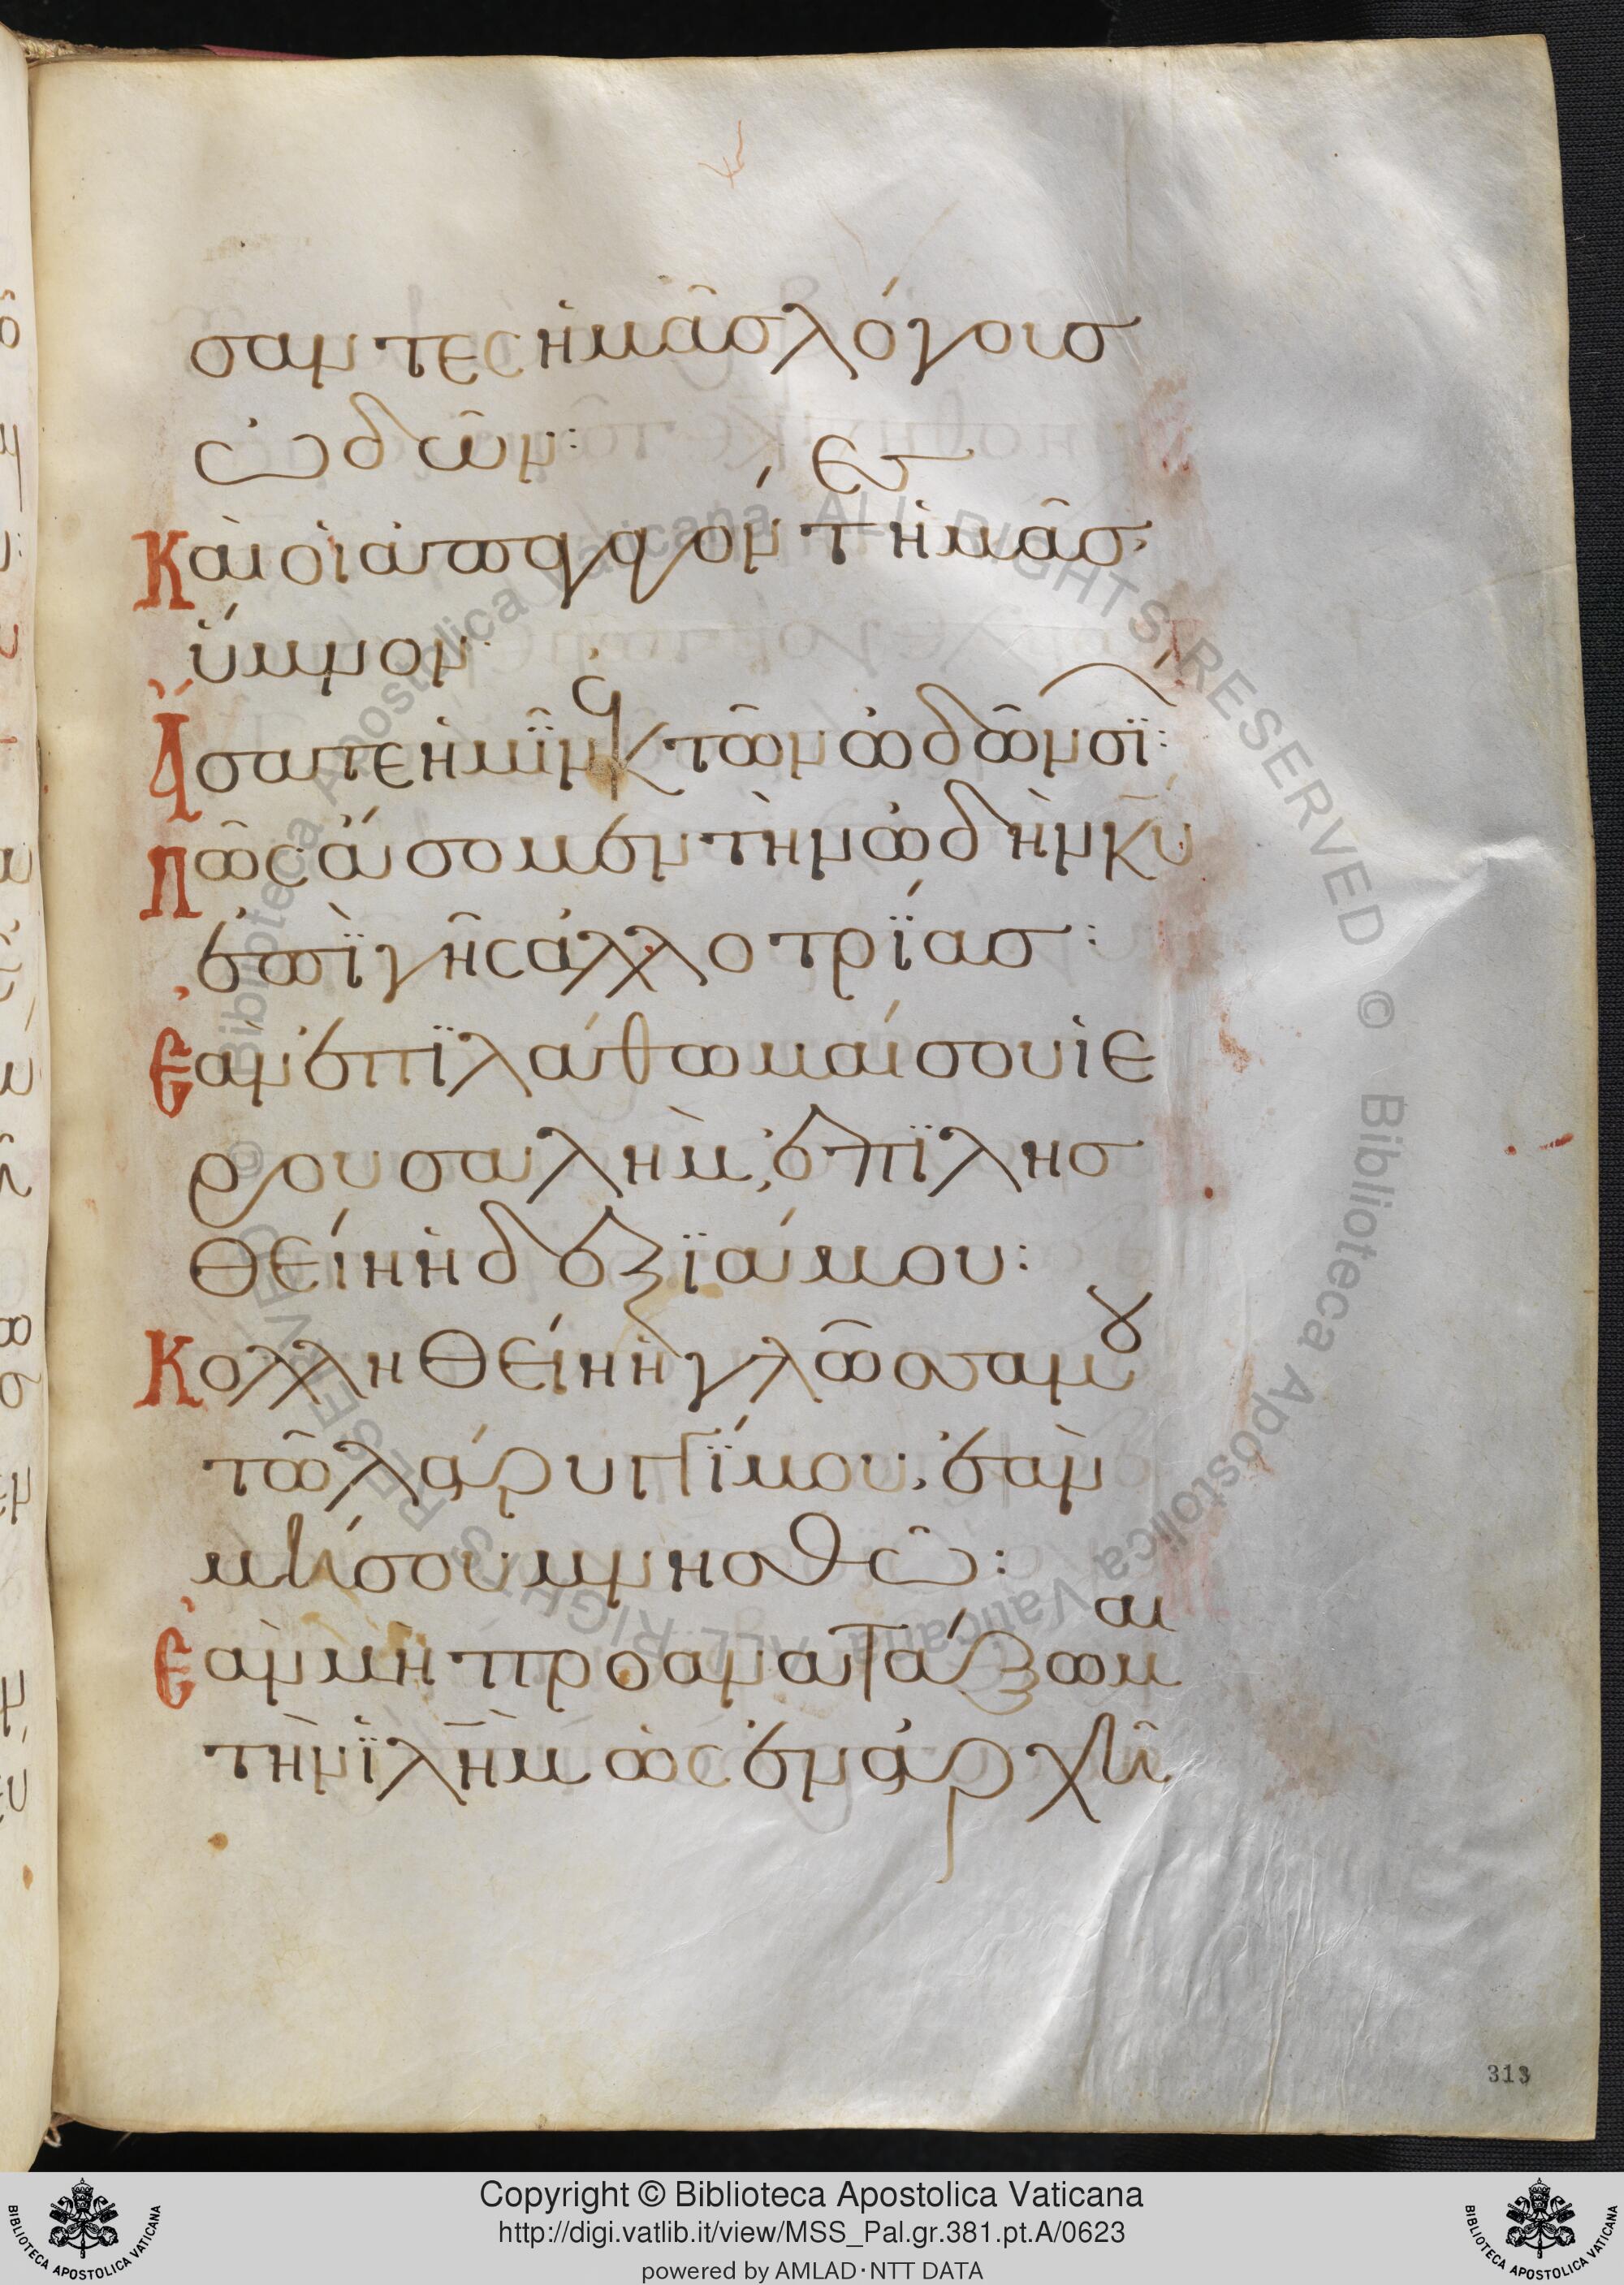 σαντες ἡμᾶς λόγους
ὠδῶν:
Καὶ οἱ ἀπαγαγόντες ἡμᾶς,
ὕμνον·
Ἄσατε ἡμῖν ἐκ τῶν ὠδῶν σιὼν:
Πῶς ἄσομεν τὴν ὠδὴν κ̅υ̅
ἐπὶ γῆς ἀλλοτρίας:
Ἐὰν ἐπιλάθωμαί σου ἱε
ρουσαλὴμ, ἐπιλησ
θείη ἡ δεξιά μου:
Κολληθείη ἡ γλῶσσά μου
τῶ λάρυγγί μου, ἐὰν
μή σου μνησθῶ:
Ἐὰν μὴ προσανατάξωμαι
τὴν ἰλῆμ ὡς ἐν ἀρχῆ
313
Copyright © Biblioteca Apostolica Vaticana
http://digi.vatlib.it/view/MSS_Pal.gr.381.pt.A/0623
powered by AMLAD·NTT DATA
BIBLIOTECA APOSTOLICA VATICANA
BIBLIOTECA APOSTOLICA VATICANA
© Biblioteca Apostolica Vaticana ALL RIGHTS RESERVED © Biblioteca Apostolica Vaticana ALL RIGHTS RESERVED